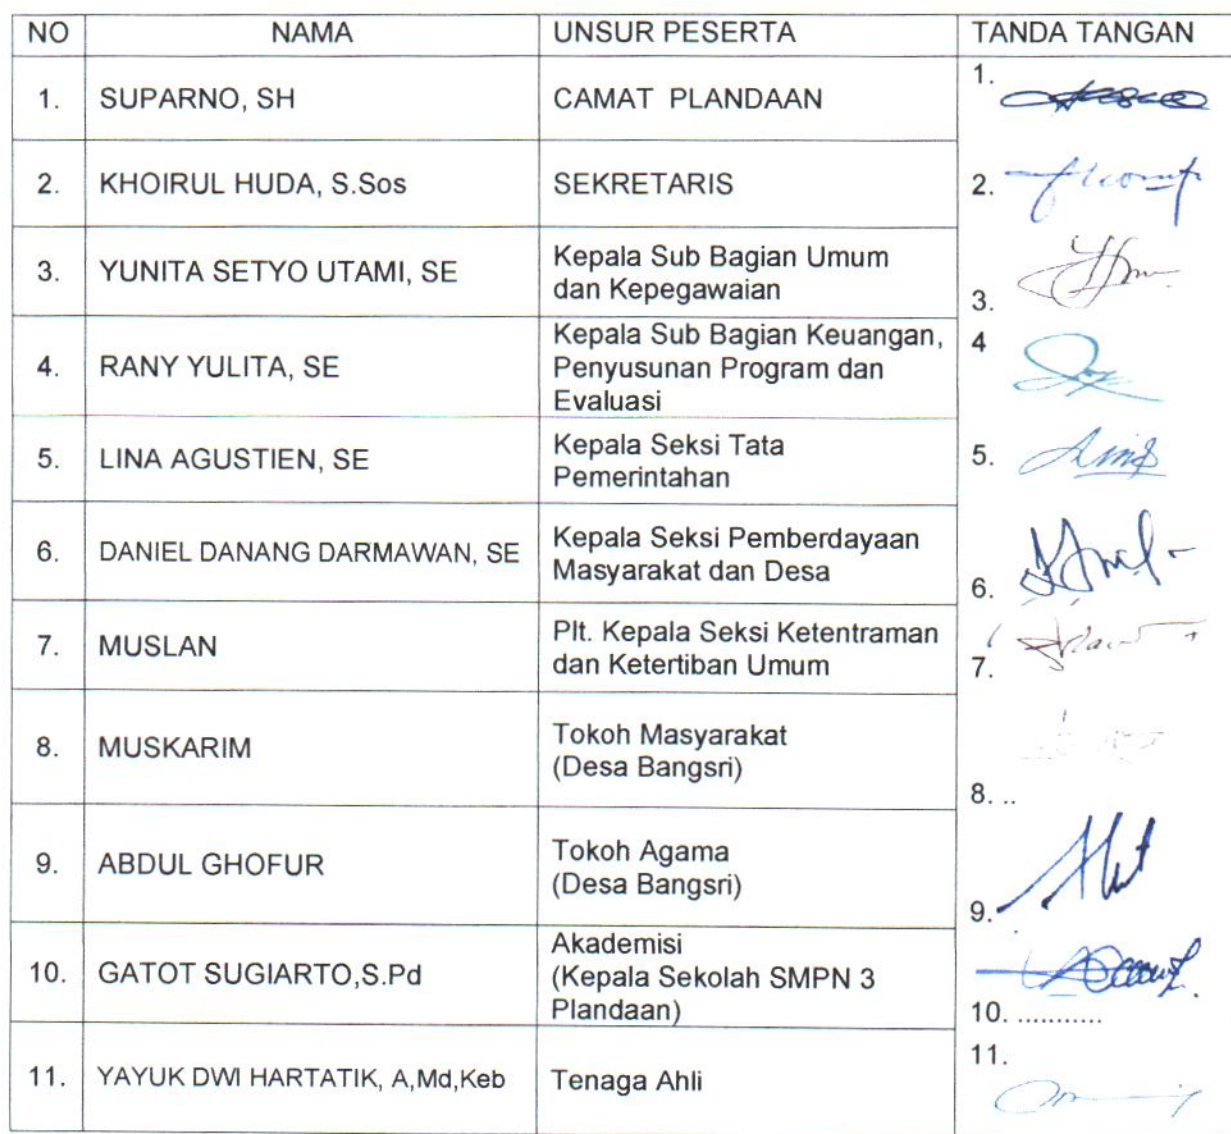 NO NAMA UNSUR PESERTA TANDA TANGAN
1. SUPARNO, SH CAMAT PLANDAAN 1.
2. KHOIRUL HUDA, S.Sos SEKRETARIS 2.
3. YUNITA SETYO UTAMI, SE Kepala Sub Bagian Umum
dan Kepegawaian 3.
4. RANY YULITA, SE Kepala Sub Bagian Keuangan,
Penyusunan Program dan
Evaluasi 4
5. LINA AGUSTIEN, SE Kepala Seksi Tata
Pemerintahan 5.
6. DANIEL DANANG DARMAWAN, SE Kepala Seksi Pemberdayaan
Masyarakat dan Desa 6.
7. MUSLAN Plt. Kepala Seksi Ketentraman
dan Ketertiban Umum 7.
8. MUSKARIM Tokoh Masyarakat
(Desa Bangsri) 8. ..
9. ABDUL GHOFUR Tokoh Agama
(Desa Bangsri) 9.
10. GATOT SUGIARTO,S.Pd Akademisi
(Kepala Sekolah SMPN 3
Plandaan) 10. ...........
11. YAYUK DWI HARTATIK, A,Md,Keb Tenaga Ahli 11.